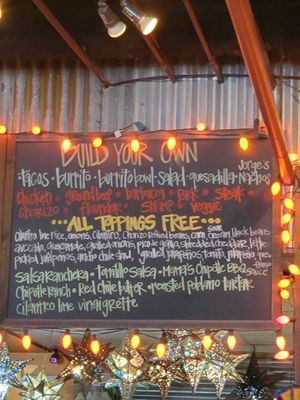 BUILD YOUR OWN
Jorge's
tacos · burrito · burrito bowl · salad · quesadilla · Nachos
chicken · ground beef · barbacoa · Pork · steak ·
CHORIZO · Flounder · shrimp · veggie
··· ALL TOPPINGS FREE ···
cilantro lime Rice, onions, cilantro, Chorizo Refried beans, corn, sour cream, black beans
avocado, guacamole, grilled onions, pico de gallo, shredded cheddar, lettuce
pickled jalapeños, ancho chile slaw, grilled jalapeños, tomato, jalapeños,
sauce
Salsa Ranchera · Tomatillo Salsa · Mama's Chipotle BBQ
Chipotle Ranch · Red Chile butter · roasted poblano tartar
Cilantro lime vinaigrette